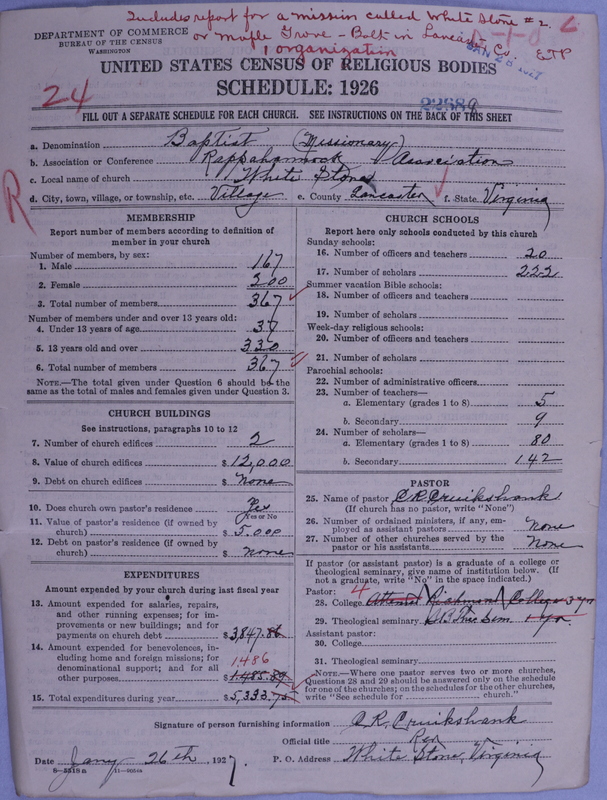 Includes report for a mission called White Stone #2
DEPARTMENT OF COMMERCE
or Maple Grove - Both in Lancaster Co.
ETP
BUREAU OF THE CENSUS
WASHINGTON
1 organization
JAN 28 1927
UNITED STATES CENSUS OF RELIGIOUS BODIES
SCHEDULE: 1926
24
FILL OUT A SEPARATE SCHEDULE FOR EACH CHURCH. SEE INSTRUCTIONS ON THE BACK OF THIS SHEET
a. Denomination Baptist (Missionary)
b. Association or Conference Rappahannock Association
c. Local name of church White Stone
d. City, town, village, or township, etc. Village e. County Lancaster f. State Virginia
R
MEMBERSHIP
Report number of members according to definition of
member in your church
Number of members, by sex:
1. Male 167
2. Female 200
3. Total number of members 367
Number of members under and over 13 years old:
4. Under 13 years of age 37
5. 13 years old and over 330
6. Total number of members 367
NOTE.—The total given under Question 6 should be the
same as the total of males and females given under Question 3.
CHURCH BUILDINGS
See instructions, paragraphs 10 to 12
7. Number of church edifices 2
8. Value of church edifices $ 12,000
9. Debt on church edifices $ None
10. Does church own pastor's residence? Yes
Yes or No
11. Value of pastor's residence (if owned by
church) $ 5,000
12. Debt on pastor's residence (if owned by
church) $ none
EXPENDITURES
Amount expended by your church during last fiscal year
13. Amount expended for salaries, repairs,
and other running expenses; for im-
provements or new buildings; and for
payments on church debt $ 3,847.86
14. Amount expended for benevolences, in-
cluding home and foreign missions; for
denominational support; and for all
1486
other purposes $ 1,485.89
15. Total expenditures during year $ 5,333.75
CHURCH SCHOOLS
Report here only schools conducted by this church
Sunday schools:
16. Number of officers and teachers 20
17. Number of scholars 222
Summer vacation Bible schools:
18. Number of officers and teachers
19. Number of scholars
Week-day religious schools:
20. Number of officers and teachers
21. Number of scholars
Parochial schools:
22. Number of administrative officers
23. Number of teachers—
a. Elementary (grades 1 to 8) 5
b. Secondary 9
24. Number of scholars—
a. Elementary (grades 1 to 8) 80
b. Secondary 142
PASTOR
25. Name of pastor C R Cruikshank
(If church has no pastor, write "None")
26. Number of ordained ministers, if any, em-
ployed as assistant pastors none
27. Number of other churches served by the
pastor or his assistants None
If pastor (or assistant pastor) is a graduate of a college or
theological seminary, give name of institution below. (If
not a graduate, write "No" in the space indicated.)
Pastor: 4
28. College Attended Richmond College 3 yrs
29. Theological seminary S.B. Theo Sem. 1 yr
Assistant pastor:
30. College
31. Theological seminary
NOTE.—Where one pastor serves two or more churches,
Questions 28 and 29 should be answered only on the schedule
for one of the churches; on the schedules for the other churches,
write "See schedule for church."
Signature of person furnishing information C R Cruikshank
Official title Rev
Date Jany 26th, 1927. P. O. Address White Stone, Virginia
8-5518 a 11-9054a